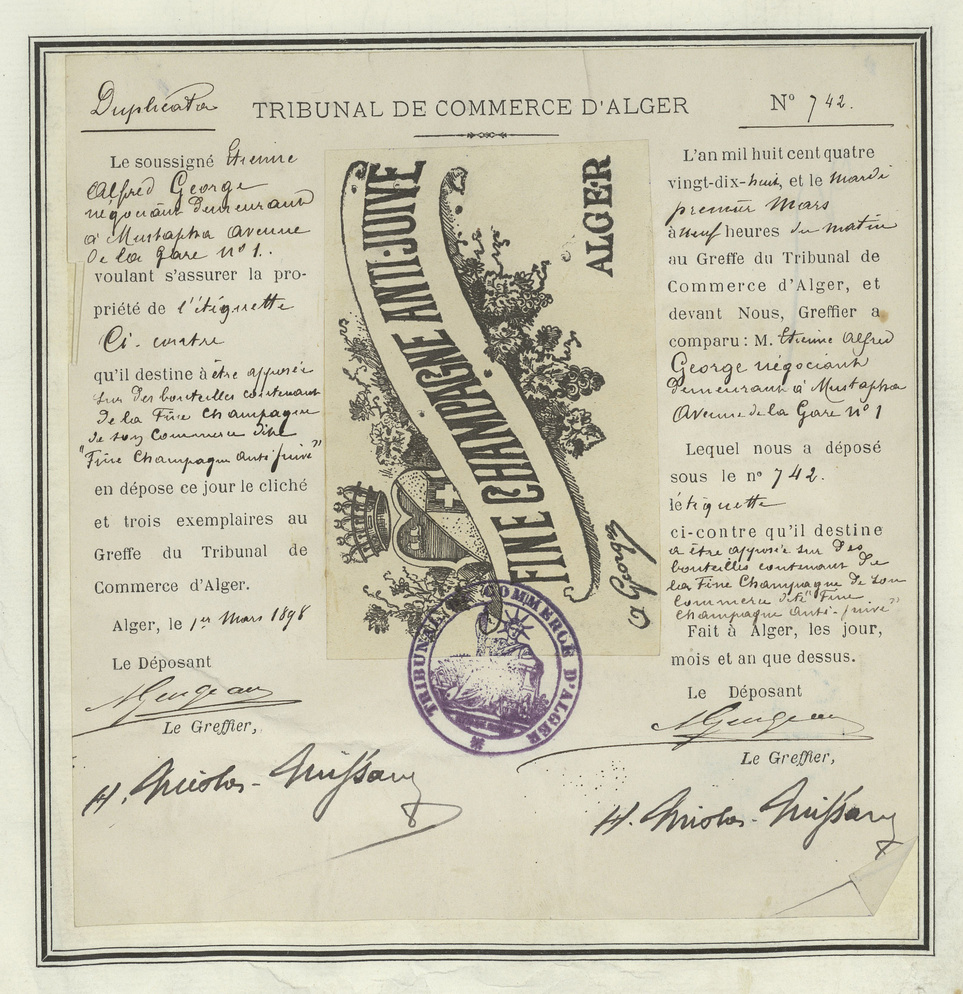 Duplicata
TRIBUNAL DE COMMERCE D'ALGER
N° 742.
Le soussigné Etienne
Alfred George
négociant demeurant
à Mustapha Avenue
de la gare n° 1..
voulant s'assurer la pro-
priété de l'étiquette
Ci-contre
qu'il destine à être apposée
sur des bouteilles contenant
de la Fine Champagne
de son Commerce dite
"Fine Champagne Anti-juive"
en dépose ce jour le cliché
et trois exemplaires au
Greffe du Tribunal de
Commerce d'Alger.
Alger, le 1er Mars 1898
Le Déposant
Le Greffier,
FINE CHAMPAGNE ANTI-JUIVE
ALGER
TRIBUNAL DE COMMERCE D'ALGER
L'an mil huit cent quatre
vingt-dix-huit, et le mardi
premier Mars
à neuf heures du matin
au Greffe du Tribunal de
Commerce d'Alger, et
devant Nous, Greffier a
comparu : M. Etienne Alfred
George négociant
demeurant à Mustapha
Avenue de la Gare n° 1
Lequel nous a déposé
sous le n° 742.
l'étiquette
ci-contre qu'il destine
à être apposée sur des
bouteilles contenant de
la Fine Champagne de son
Commerce dite "Fine
Champagne Anti-juive"
Fait à Alger, les jour,
mois et an que dessus.
Le Déposant
Le Greffier,